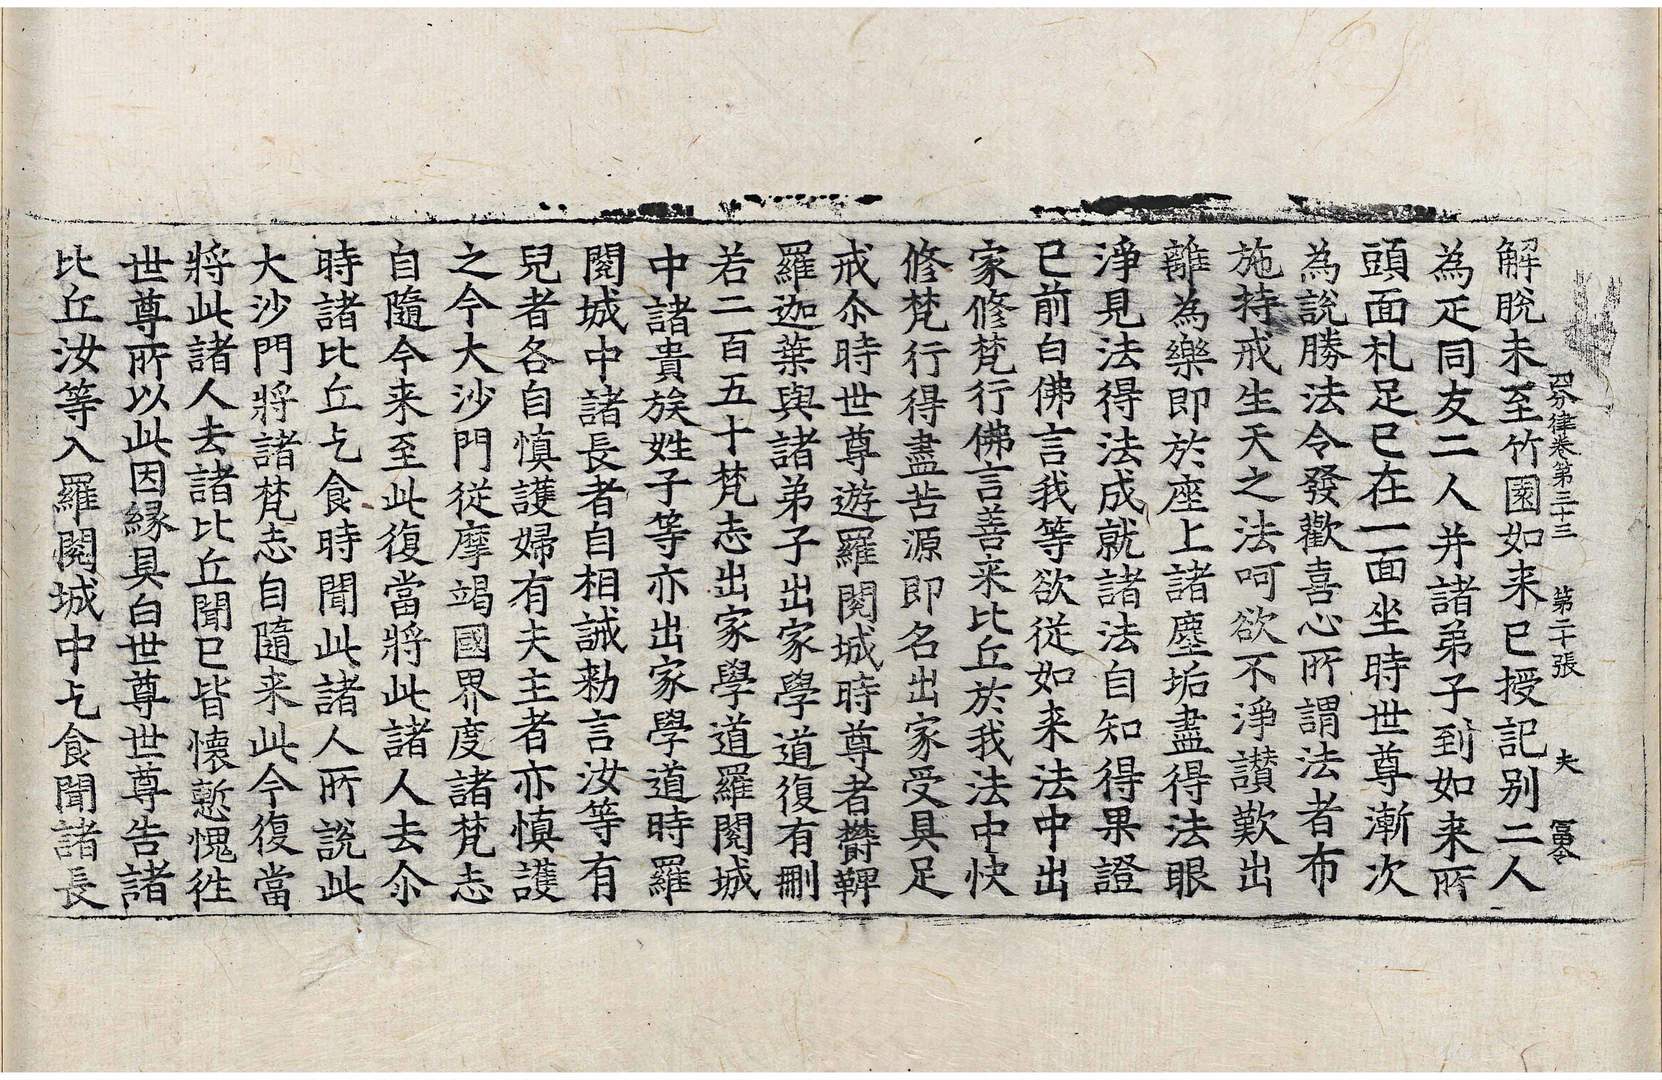 四分律卷第三十三 第二十張 夫
解脫未至竹園如来已授記别二人
為疋同友二人并諸弟子到如来所
頭面札足已在一面坐時世尊漸次
為說勝法令發歡喜心所謂法者布
施持戒生天之法呵欲不淨讃歎出
離為樂即於座上諸塵垢盡得法眼
淨見法得法成就諸法自知得果證
已前白佛言我等欲從如来法中出
家修梵行佛言善来比丘於我法中快
修梵行得盡苦源即名出家受具足
戒尒時世尊遊羅閱城時尊者欝鞞
羅迦葉與諸弟子出家學道復有刪
若二百五十梵志出家學道羅閱城
中諸貴族姓子等亦出家學道時羅
閱城中諸長者自相誡勑言汝等有
兒者各自慎護婦有夫主者亦慎護
之今大沙門從摩竭國界度諸梵志
自隨今来至此復當將此諸人去尒
時諸比丘乞食時聞此諸人所說此
大沙門將諸梵志自隨来此今復當
將此諸人去諸比丘聞已皆懷慙愧徃
世尊所以此因緣具白世尊世尊告諸
比丘汝等入羅閱城中乞食聞諸長